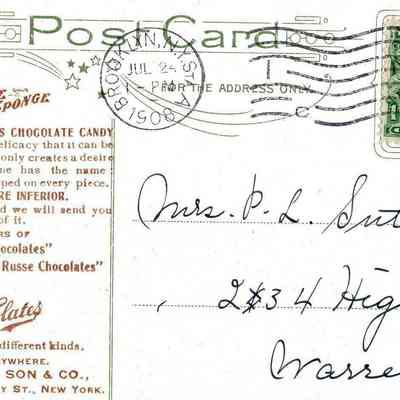 Post Card
BROOKLYN, N.Y. STA.
JUL 24
1908
FOR THE ADDRESS ONLY.
SPONGE
S CHOCOLATE CANDY
elicacy that it can be
only creates a desire
ne has the name
ped on every piece.
RE INFERIOR.
d we will send you
of it.
RS OF
ocolates"
Russe Chocolates"
lates
different kinds.
YWHERE.
SON & CO.,
Y ST., NEW YORK.
Mrs. P. L. Sut
234 Hig
Warre